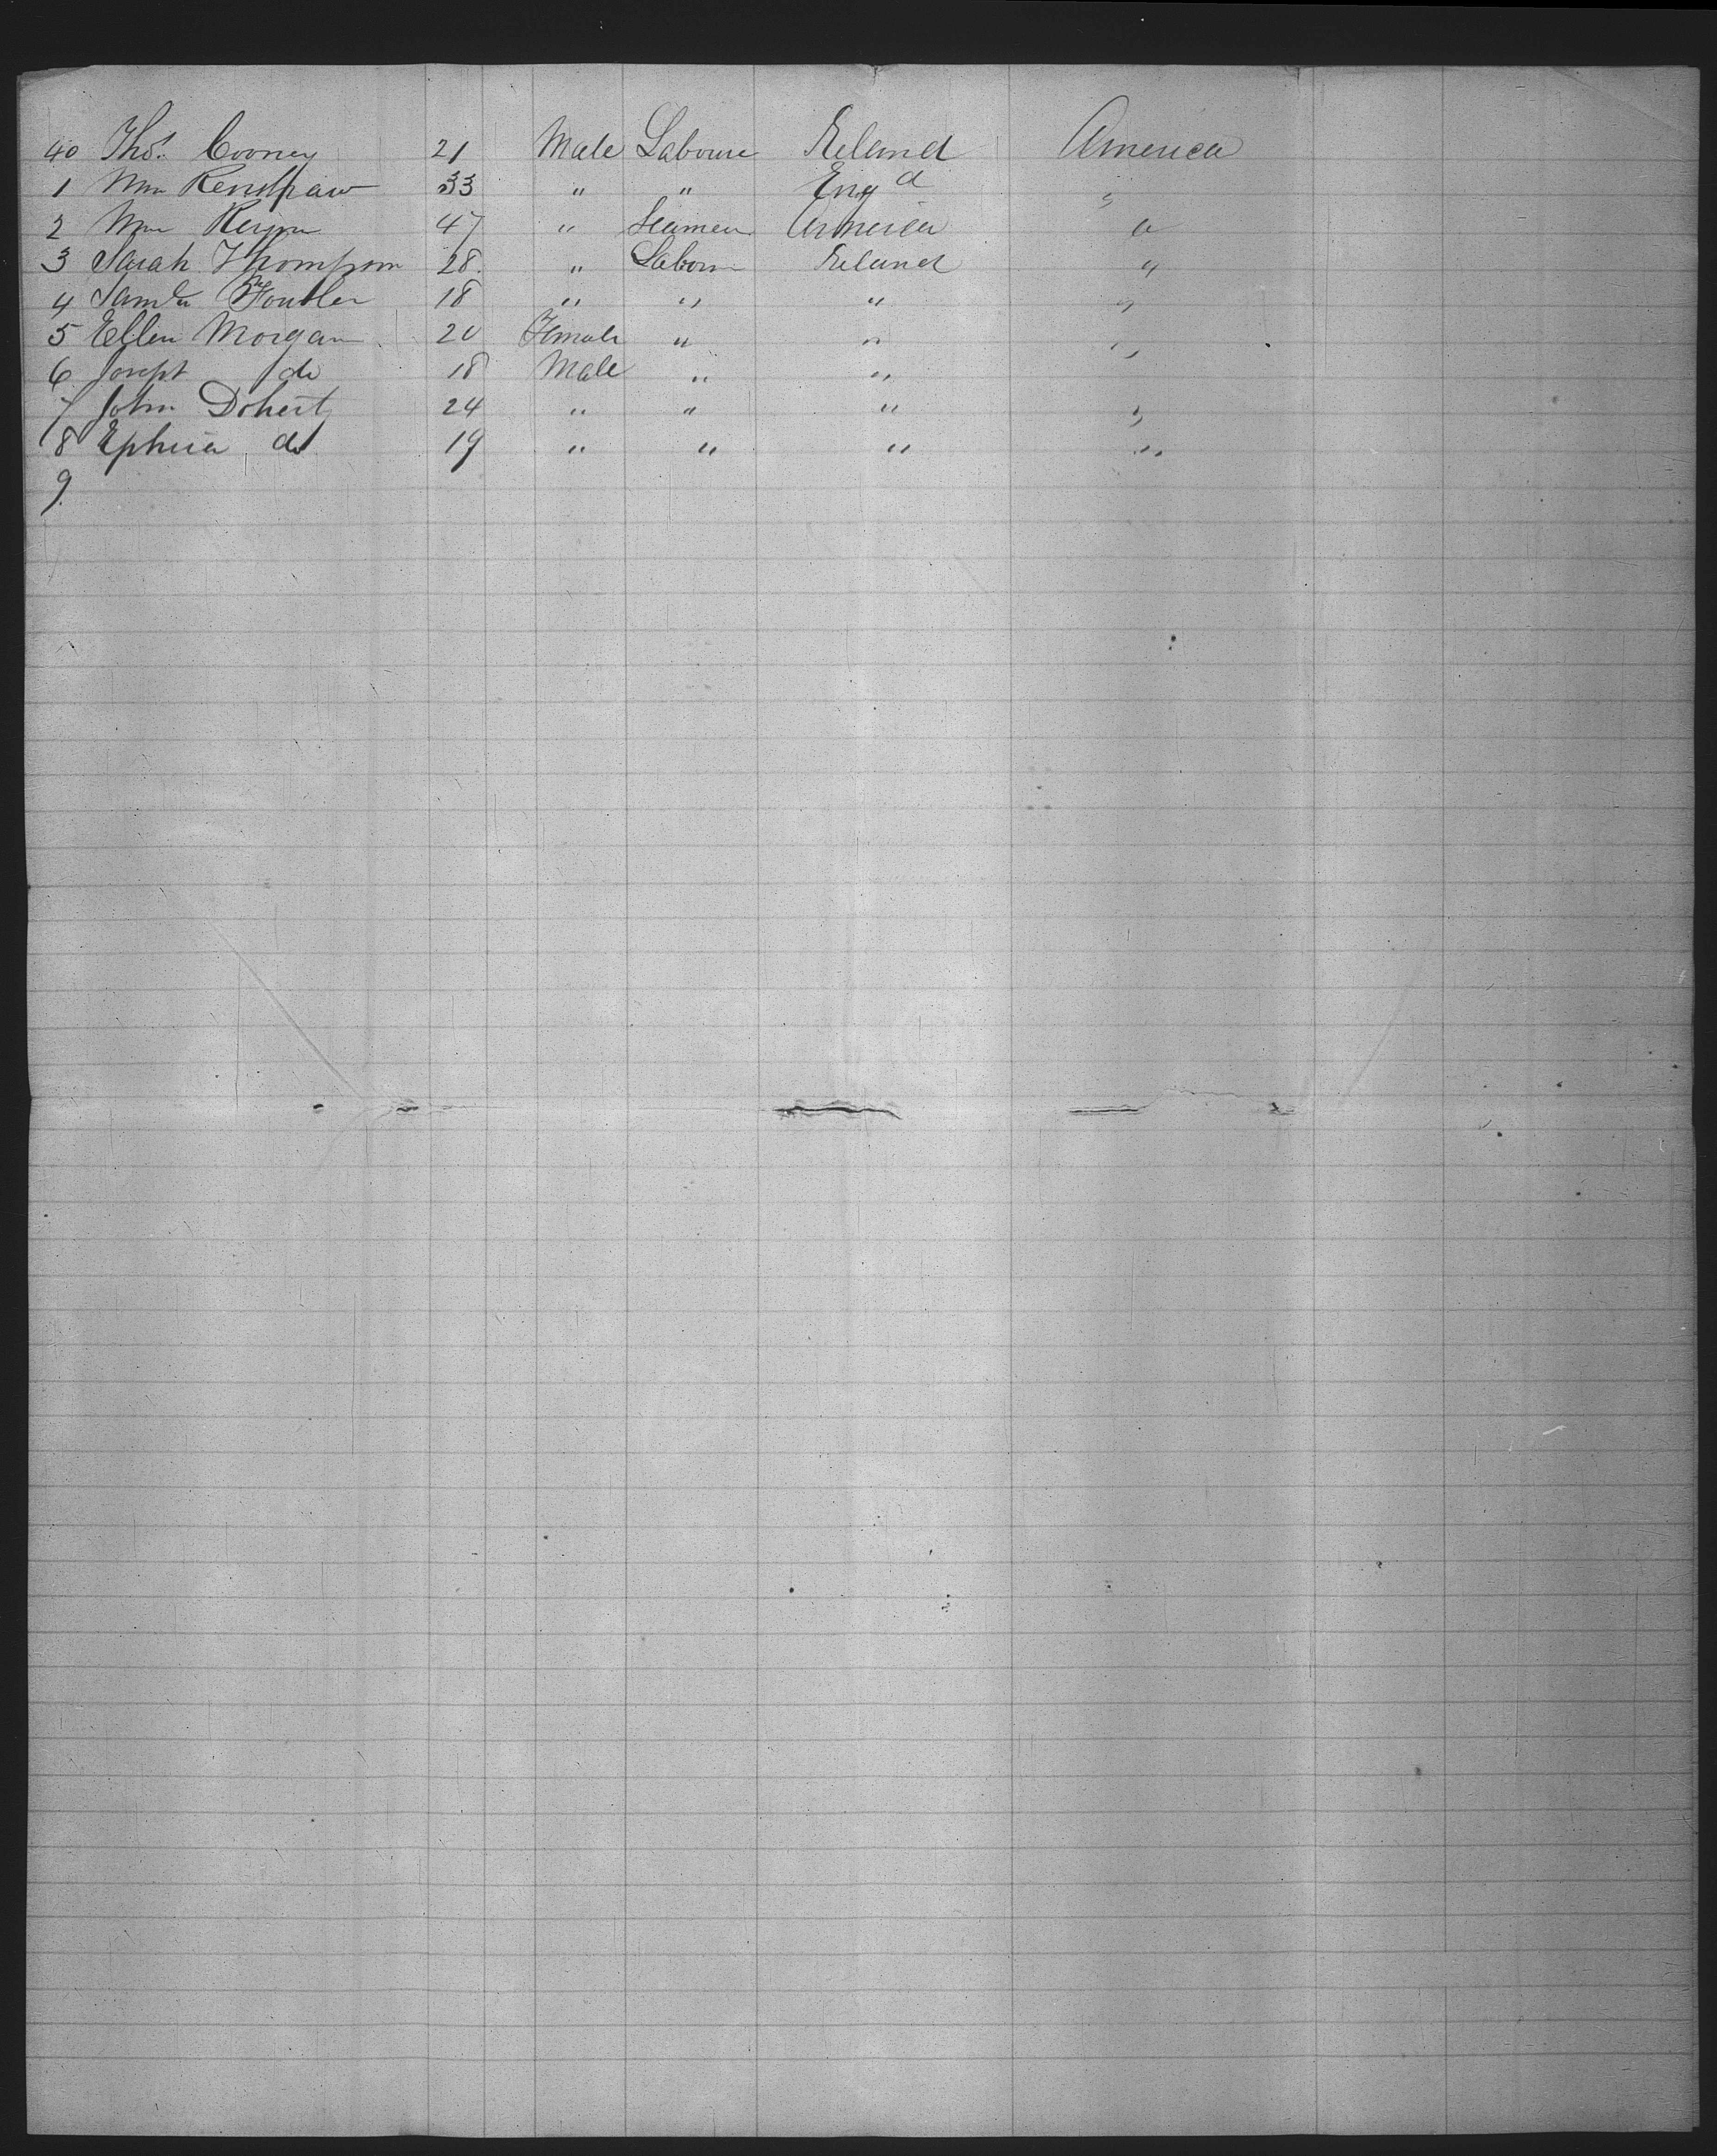 40 Thos. Cooney 21 Male Laboure Ireland America
1 Wm Renshaw 33 " " Engd "
2 Wm 47 " Seamen America "
3 Sarah Thompson 28. " Labour Ireland "
4 Saml 18 " " " "
5 Ellen Morgan 20 Female " " "
6 Joseph do 18 Male " " "
7 John Doherty 24 " " " "
8 do 19 " " " "
9.